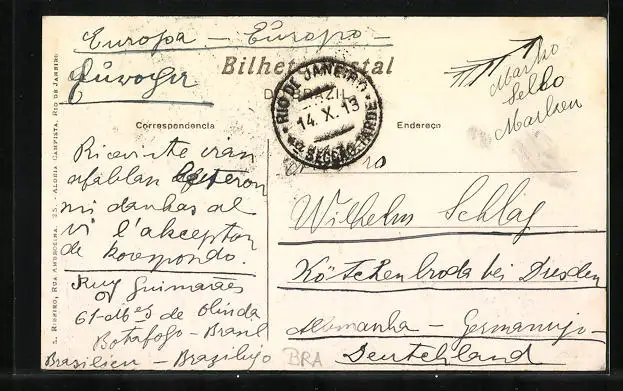 Europa — Europo —
Europa
Bilhete Postal
DO BRAZIL
RIO DE JANEIRO
14.X.13
4ª SECÇÃO TARDE
Marko
Sello
Marken
Correspondencia
Endereço
Ricevinte vian
afablan leteron
mi dankas al
vi l'akcepton
de korespondo.
Ruy Guimarães
61 de Olinda
Botafogo - Brasil
Brasilien - Brazilujo
Wilhelm Schlag
Kötzchenbroda bei Dresden
Allemanha — Germanujo —
Deutchland
BRA
L. RIBEIRO, RUA AMBROSINA, 35, ALDEIA CAMPISTA, RIO DE JANEIRO